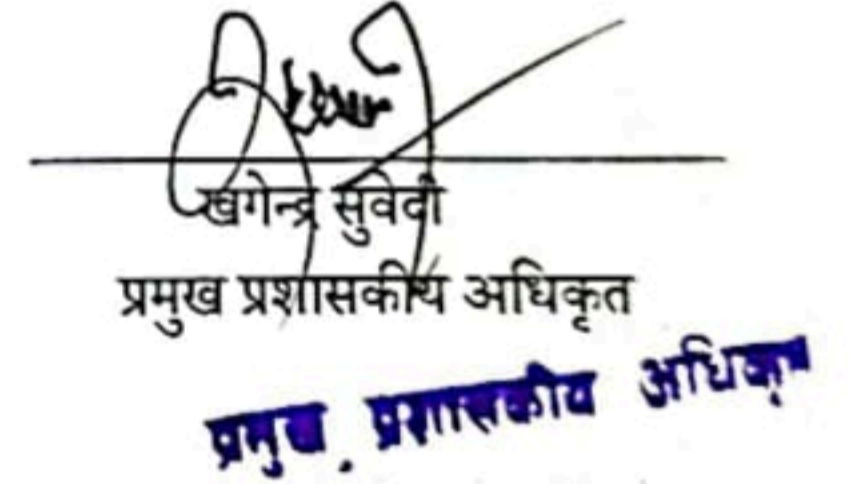 खगेन्द्र सुवेदी
प्रमुख प्रशासकीय अधिकृत
प्रमुख प्रशासकीय अधिकृत